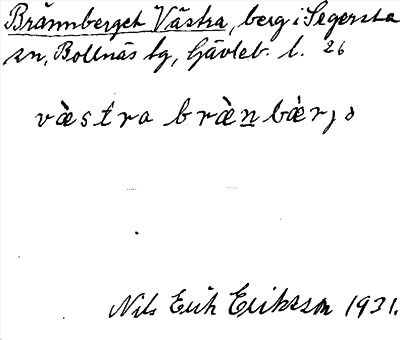 Brännberget Västra, berg i Segersta
sn, Bollnäs tg, Gävleb. l. 26
västra brän̲bàrjə
Nils Erik Eriksson 1931.